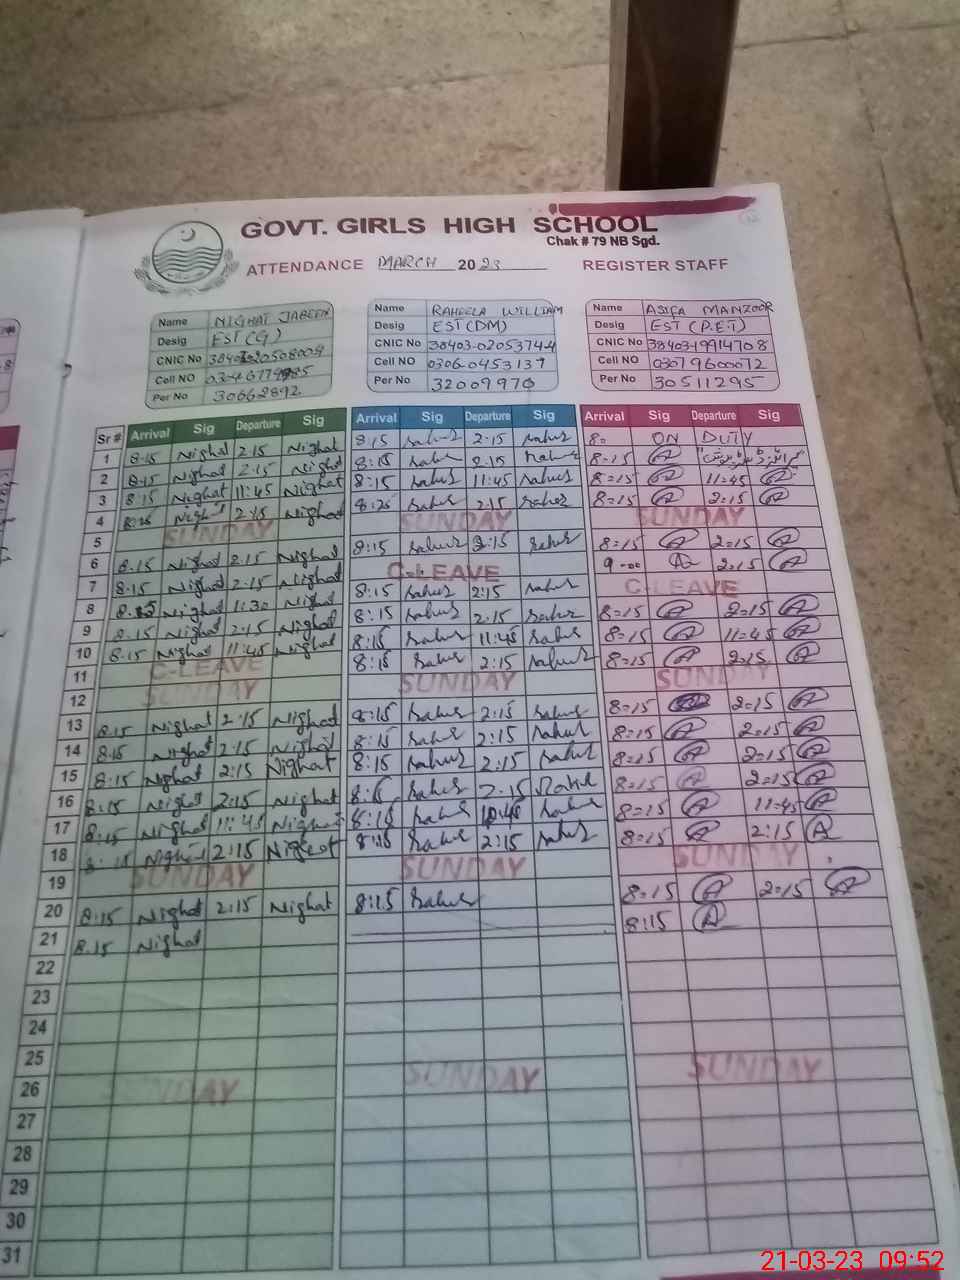 GOVT. GIRLS HIGH SCHOOL
Chak # 79 NB Sgd.
ATTENDANCE MARCH 2023 REGISTER STAFF
Name NIGHAT JABEEN Name RAHEELA WILLIAM Name ASIFA MANZOOR
Desig EST (G) Desig EST (DM) Desig EST (P.E.T)
CNIC No CNIC No 38403-0205374-4 CNIC No 38403-19914708
Cell NO Cell NO 0306-0453137 Cell NO 03079600072
Per No 30662892 Per No 32009970 Per No 30511295
Sr # Arrival Sig Departure Sig Arrival Sig Departure Sig Arrival Sig Departure Sig
1 8:15 Nighat 2:15 Nighat 8:15 2:15 8= ON DUTY
2 8:15 Nighat 2:15 Nighat 8:15 2:15 8=15
3 8:15 Nighat 11:45 Nighat 8:15 11:45 8=15 11=45
4 Nighat 2:15 Nighat 2:15 8=15 2=15
5 SUNDAY SUNDAY SUNDAY
6 8:15 Nighat 2:15 Nighat 8:15 2:15 8=15 2=15
7 8:15 Nighat 2:15 Nighat C-LEAVE 9-00 2=15
8 Nighat 11:30 Nighat 8:15 2:15 C-LEAVE
9 8:15 Nighat 2:15 Nighat 8:15 2:15 8=15 2=15
10 8:15 Nighat 11:45 Nighat 8:15 11:45 8=15 11=45
11 C-LEAVE 8:15 2:15 8=15 2=15
12 SUNDAY SUNDAY SUNDAY
13 8:15 Nighat 2:15 Nighat 8:15 2:15 8=15 2=15
14 8:15 Nighat 2:15 Nighat 8:15 2:15 8=15 2=15
15 8:15 Nighat 2:15 Nighat 8:15 2:15 8=15 2=15
16 8:15 Nighat 2:15 Nighat 2:15 8=15 2=15
17 8:15 Nighat 11:45 Nighat 8:15 8=15 11=45
18 Nighat 2:15 Nighat 8:15 2:15 8=15 2:15
19 SUNDAY SUNDAY SUNDAY
20 8:15 Nighat 2:15 Nighat 8:15 8=15 2=15
21 8.15 Nighat 8:15
22
23
24
25
26 SUNDAY SUNDAY SUNDAY
27
28
29
30
31
21-03-23 09:52